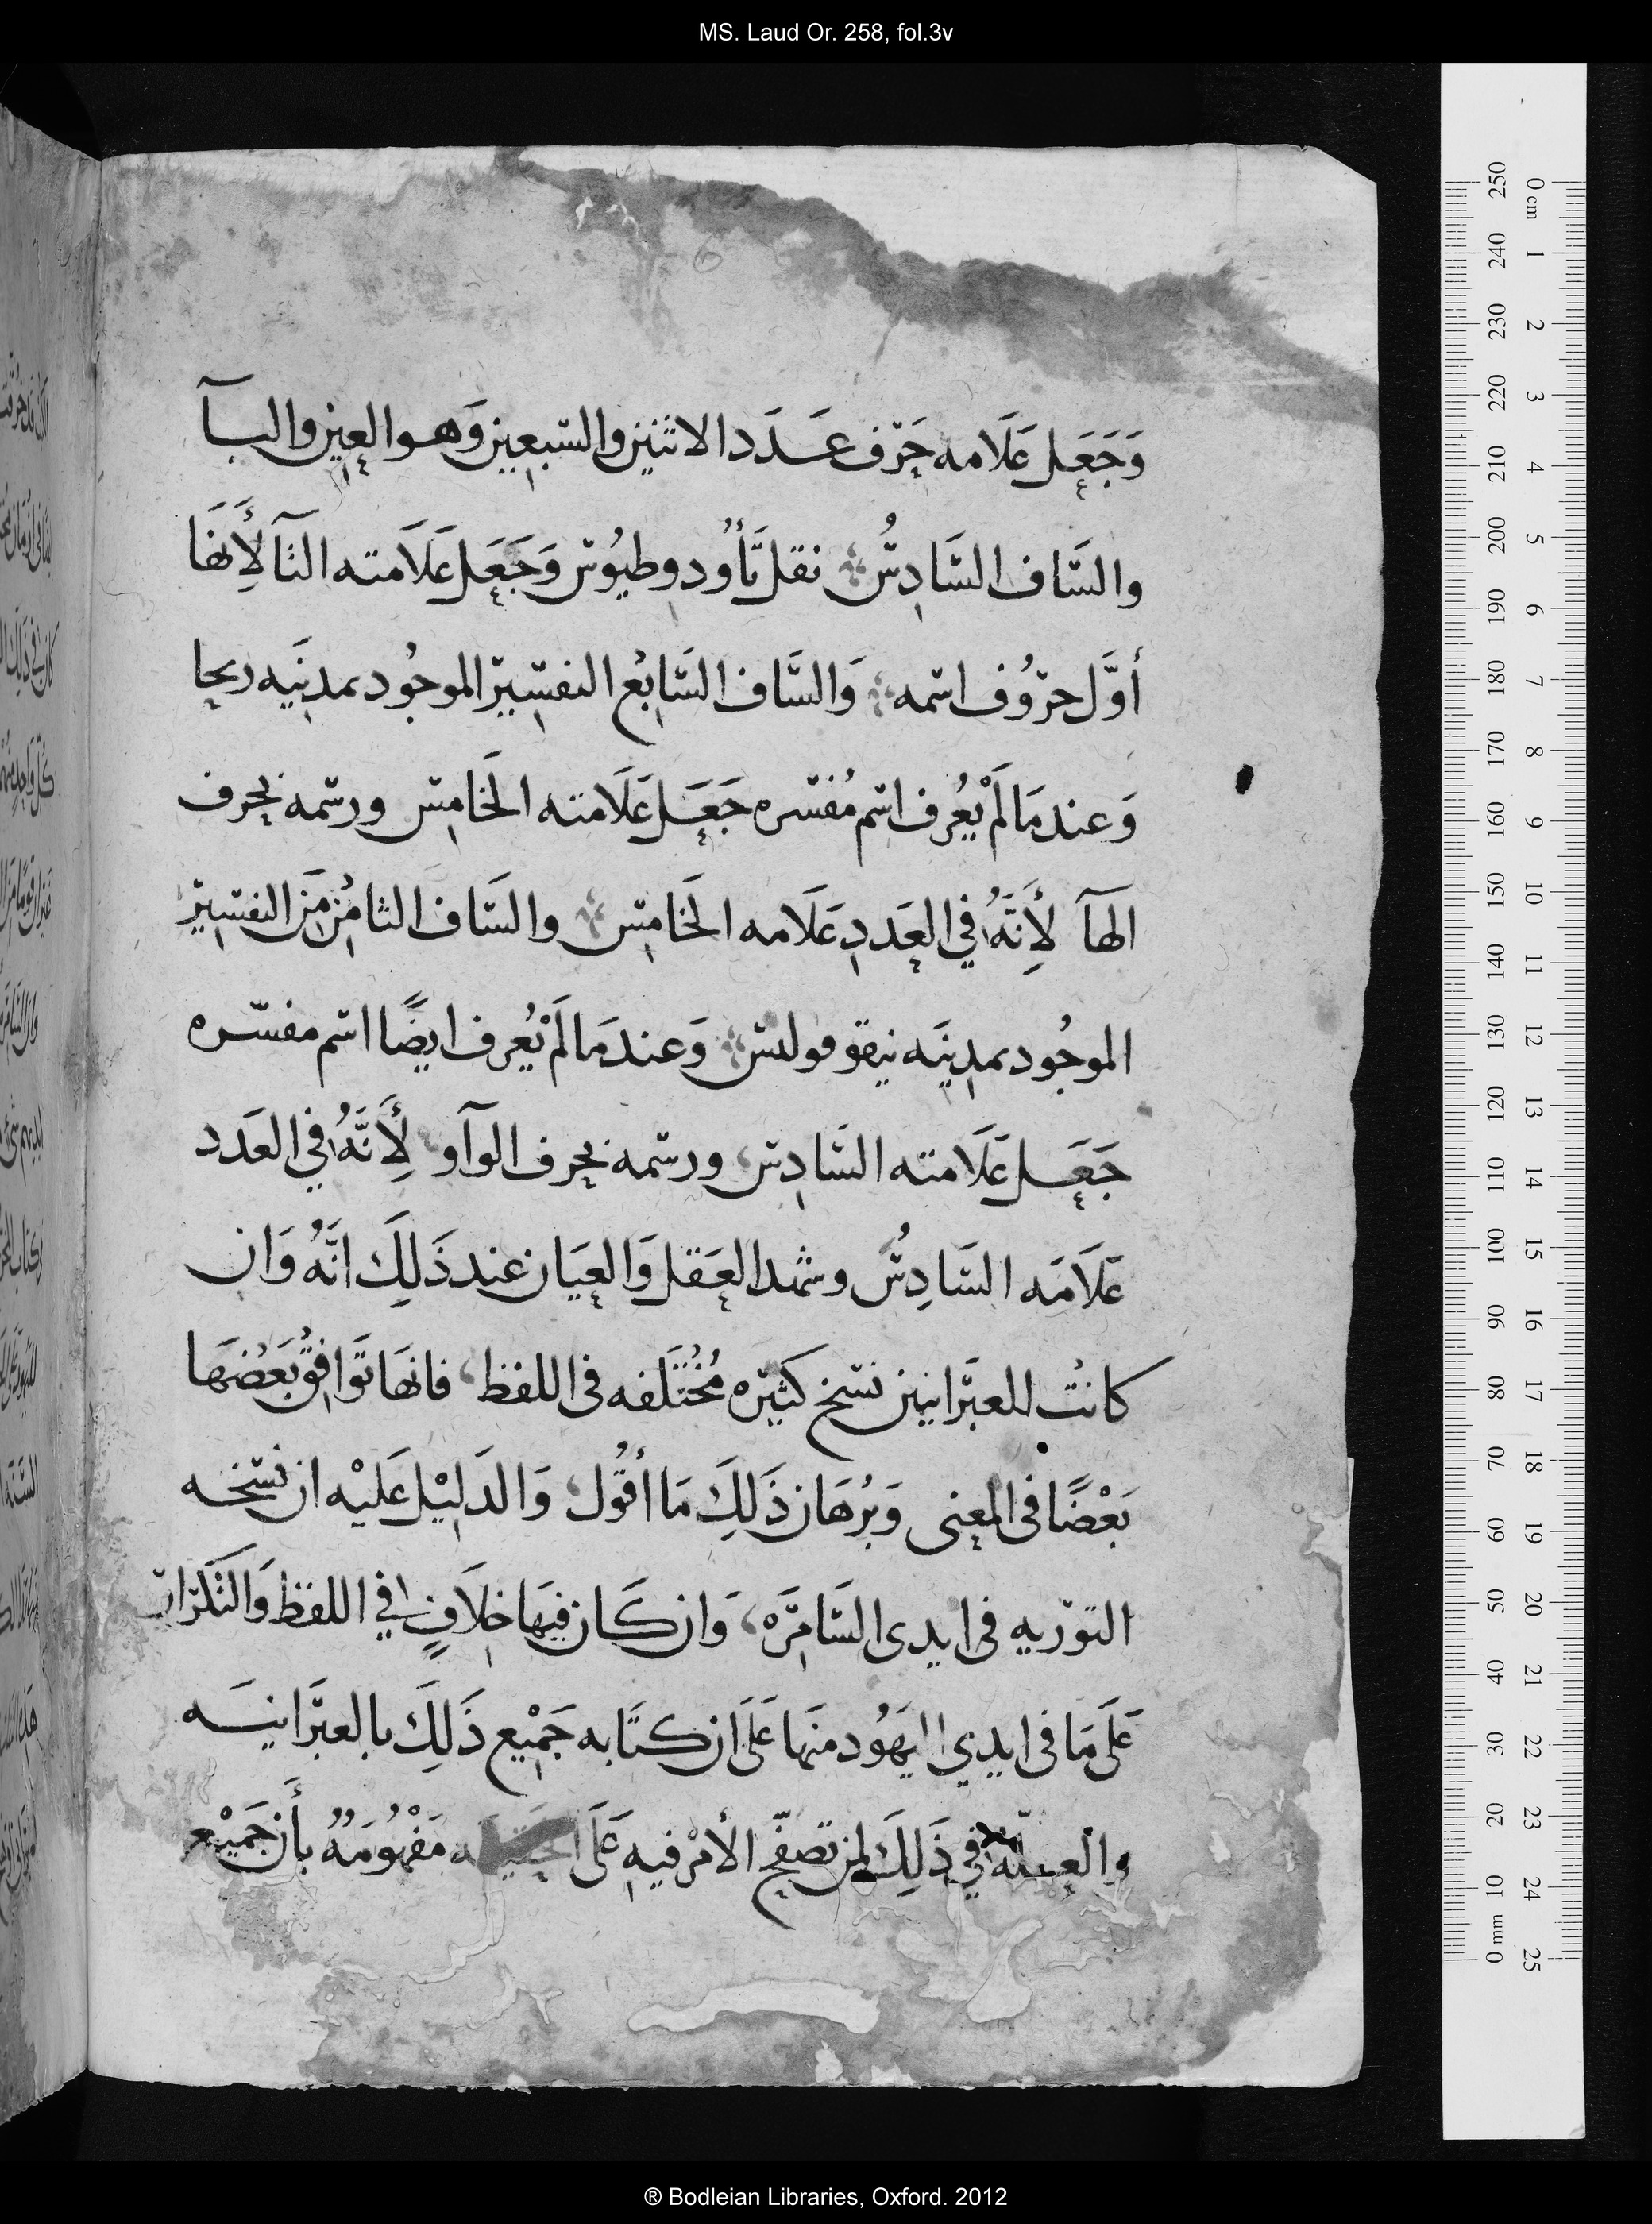 MS. Laud Or. 258, fol.3v
وَجَعَل عَلَامه حَرْف عَدَد الاثنين والسبعين وَهو العين والبآ
والسَّاف السَّادِسُ نقل ثَأُودوطيُوس وَجَعَل عَلَامته الثآ لأَنهَا
أوَّل حرُوف اسمه وَالسَّاف السَّابعُ التفسير الموجُود بمدينَه ريحا
وَعندمَا لَمْ يُعْرف اسْم مُفسره جَعَل عَلَامته الخَامِس ورسمه بحرف
الهآ لأَنَّهُ في العَددِ عَلَامه الخَامِس والسَّاف الثامُن مَن التفسِير
الموجُود بمدِينَه نيقوفولس وَعندمَا لَمْ يُعْرف ايضًا اسْم مفسّره
جَعَل عَلَامته السَّادِس ورسْمه بحرف الوآو لأَنَّهُ في العَدد
عَلَامَه السَّادِسُ وشهد العَقل وَالعِيَان عند ذَلِكَ انَّهُ وَان
كانتْ للعبَرانيين نسَخ كثيْره مُخْتَلفه فى اللفظ فانهَا تَوَافقُ بَعْضهَا
بَعْضًا فى المعنى وَبرُهَان ذَلِكَ مَا أقُول وَالدَليْل عَليْه ان نسْخه
التوْريه فى ايدى السَّامرَه وَان كَان فيَها خِلَافٍ في اللفظ وَالتَكرار
عَلَى مَا فى ايدي اليَهُود منهَا عَلَى ان كتَابه جَمْيع ذَلِكَ بالعبَرانيَه
والعله في ذَلِكَ لمن تصفح الأمْر فيهِ عَلَى مَفْهُومَهُ بأَن جَميْع
250 240 230 220 210 200 190 180 170 160 150 140 130 120 110 100 90 80 70 60 50 40 30 20 10 0 mm
0 cm 1 2 3 4 5 6 7 8 9 10 11 12 13 14 15 16 17 18 19 20 21 22 23 24 25
® Bodleian Libraries, Oxford. 2012